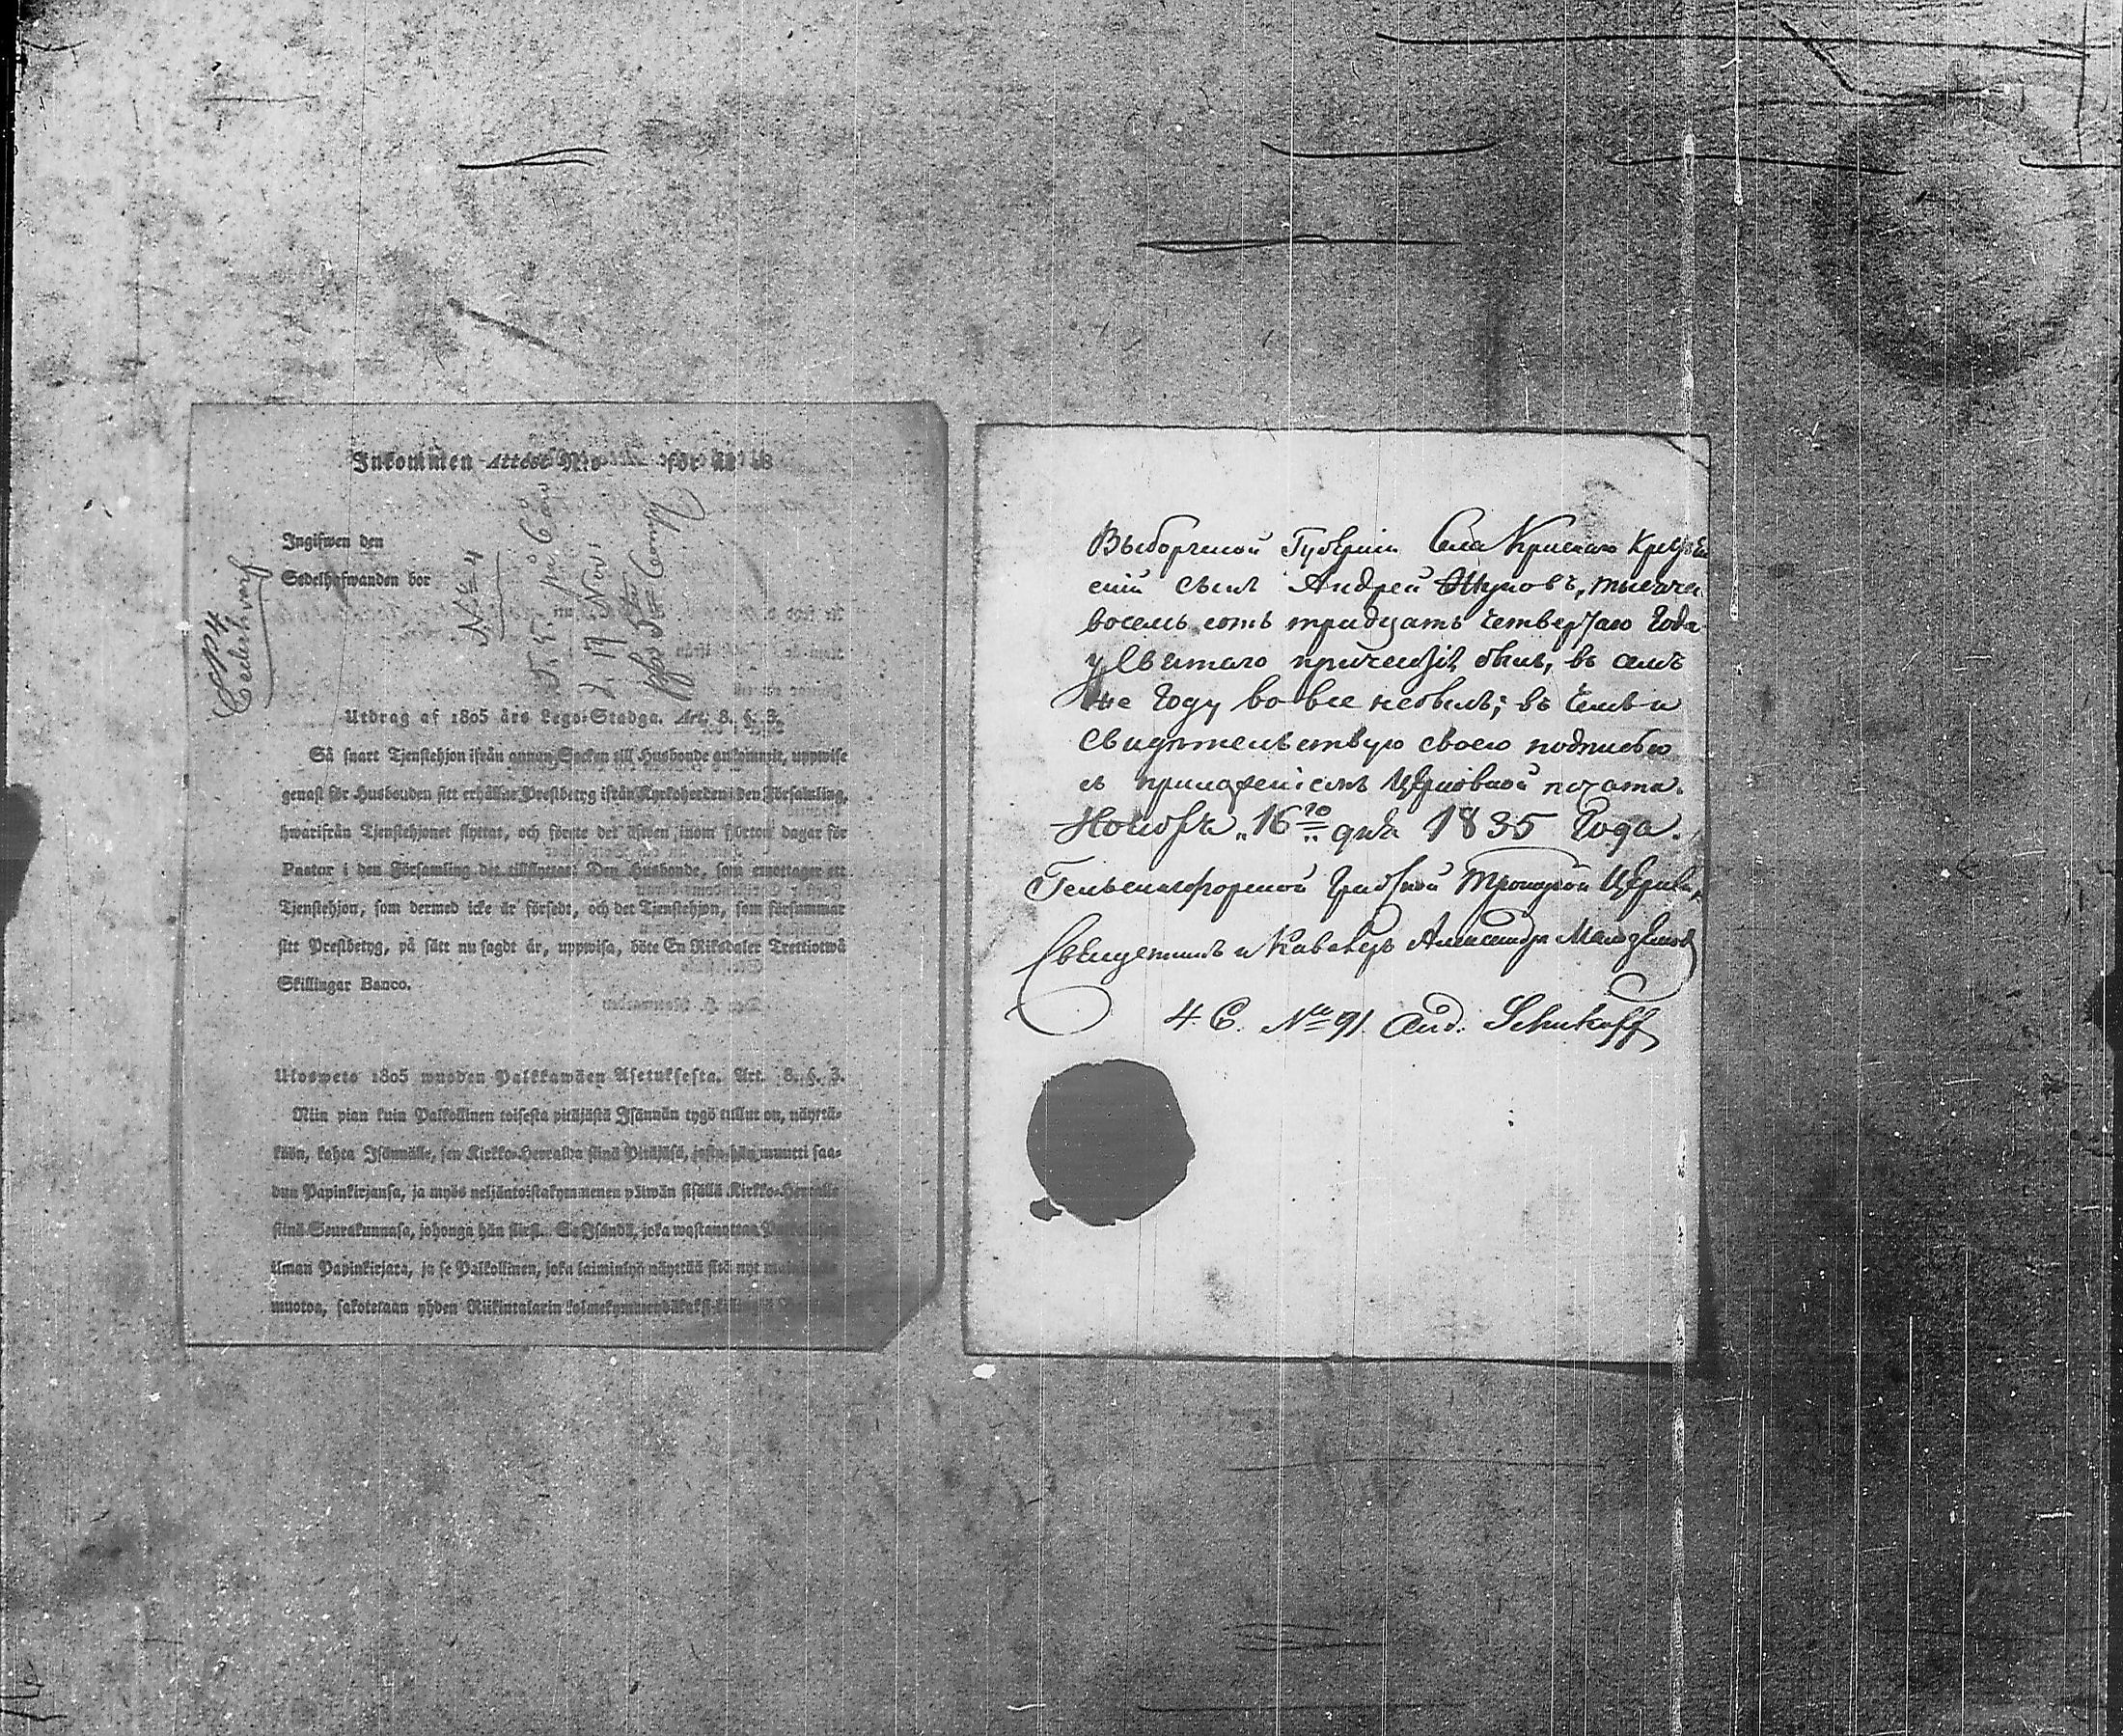 Inkommen Attest N:o för år 18
Ingifwen den
Sedelhafwanden bor
N:o 4
d. 17 Nov:
Utdrag af 1805 års Lego-Stadga. Art. 8. §. 3.
Så snart Tjenstehjon ifrån annan Socken till Husbonde ankommit, uppwise
genast för Husbonden sitt erhållne Prestbetyg ifrån Kyrkoherden i den Församling,
hwarifrån Tjenstehjonet flyttat, och förete det äfwen inom fjorton dagar för
Pastor i den Församling det tillflyttat: Den Husbonde, som emottager ett
Tjenstehjon, som dermed icke är försedt, och det Tjenstehjon, som försummar
sitt Prestbetyg, på sätt nu sagdt är, uppwisa, böte En Riksdaler Trettiotwå
Skillingar Banco.
Ulosweto 1805 wuoden Palkkawäen Asetuksesta. Art. 8. §. 3.
Niin pian kuin Palkollinen toisesta pitäjästä Isännän tygö tullut on, näyttä-
köön, kohta Isännälle, sen Kirkko-Herralda siinä Pitäjäsä, josta hän muutti saa-
dun Papinkirjansa, ja myös neljäntoistakymmenen päiwän sisällä Kirkko-Herralle
siinä Seurakunnasa, johonga hän siirsi. Se Isändä, joka wastanottaa
ilman Papinkirjata, ja se Palkollinen, joka laiminlyö näyttää sitä nyt
muotoa, sakotetaan yhden Riikintalarin kolmekymmendäkaksi killingiä
Выборгской Губернiи Села Краснаго
сынъ Андрей Жуковъ, тысяча
восемь сотъ тридцать четвертаго Года
у Святаго причастiя былъ, въ семъ
же Году вовсе небылъ; въ чемъ и
свидѣтельствую своею подписью
съ приложенiемъ Церковной печати.
Ноября „16го„ дня 1835 Года.
Гельсингфорской Троицкой Церкви,
Священникъ и Кавалеръ Александръ
4. C. N:o 91. And. Schukoff